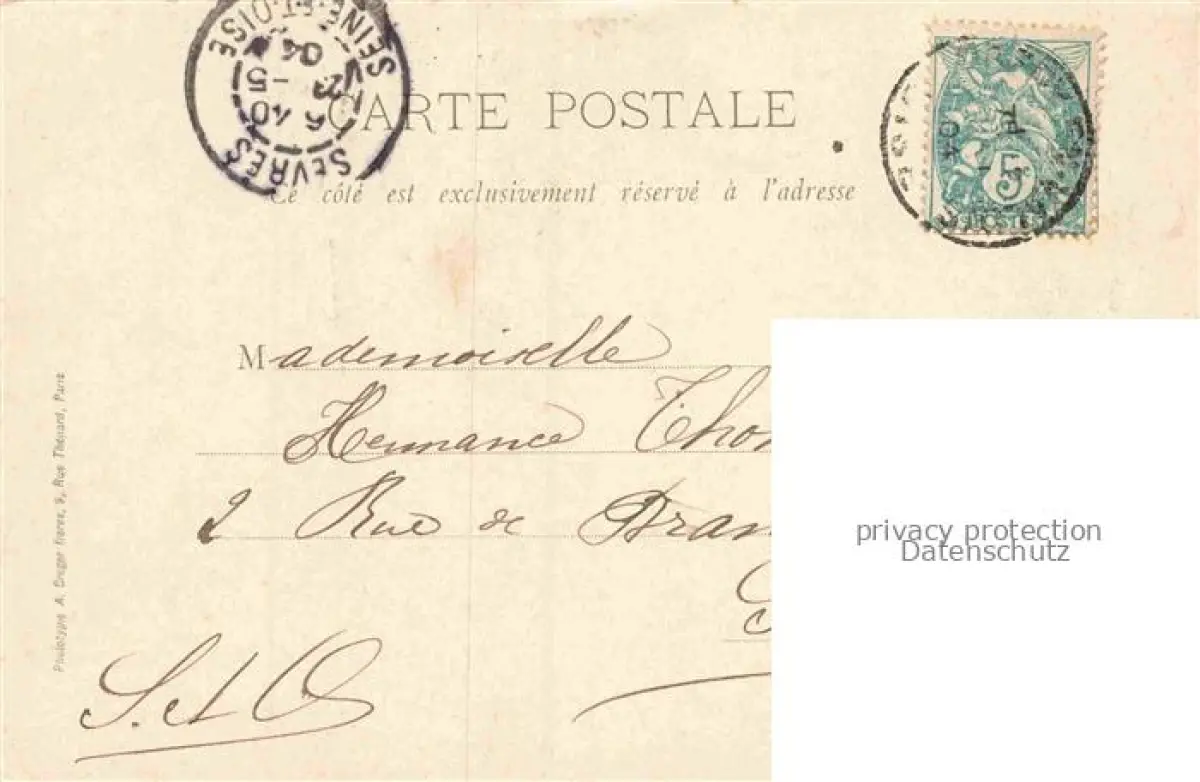 CARTE POSTALE
Ce côté est exclusivement réservé à l'adresse
SEVRES
SEINE-ET-OISE
10
5
-5
04
5
POSTES
04
Mademoiselle
Hermance Thom
2 Rue de Bran
S. et O
Phototype A. Breger frères, 9, Rue Thénard, Paris
privacy protection
Datenschutz